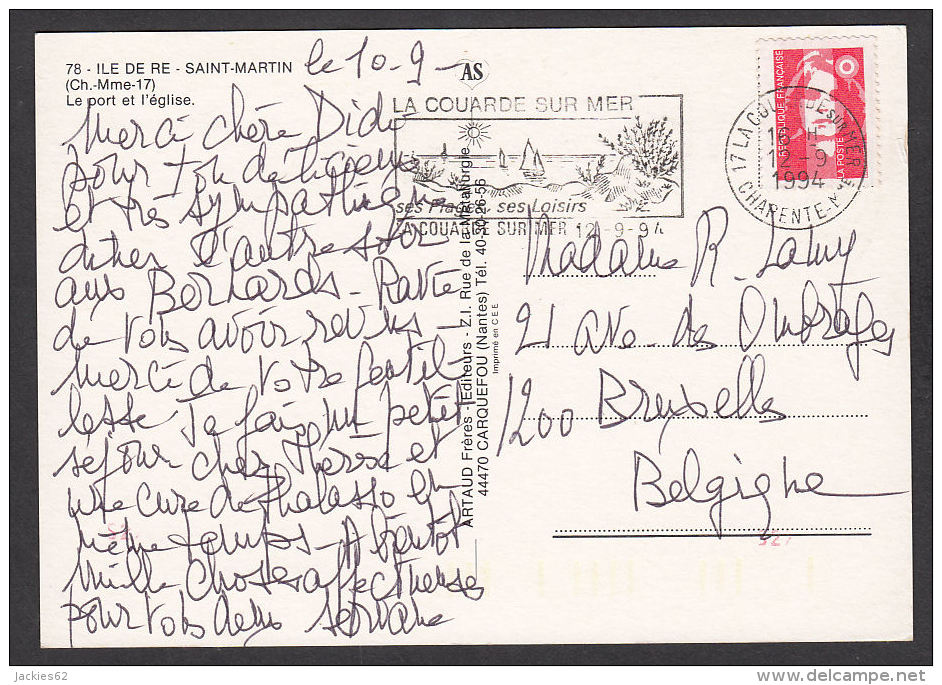 78 - ILE DE RE - SAINT-MARTIN
(Ch.-Mme-17)
Le port et l'église.
le 10-9-
Merci chère Didi
pour ton délicieux
et très sympathique
diner l'autre soir
aux Bernards - Ravie
de vous avoir revus -
Merci de votre gentil-
lesse Je fais un petit
séjour chez et
une cure de Thalasso en
même temps - A bientôt
Mille choses affectueuses
pour vous deux
AS
LA COUARDE SUR MER
ses Plages, ses Loisirs
LA COUARDE SUR MER 12-9-94
ARTAUD Frères - Editeurs - Z.I. Rue de la Métallurgie
44470 CARQUEFOU (Nantes) Tél. 40-30-26-56
Imprimé en C.E.E.
REPUBLIQUE FRANÇAISE
LA POSTE
17 LA COUARDE SUR MER
12-9
1994
CHARENTE-MME
Madame R. Lamy
21 ave des Ombrages
1200 Bruxelles
Belgique
jackies62
delcampe.net